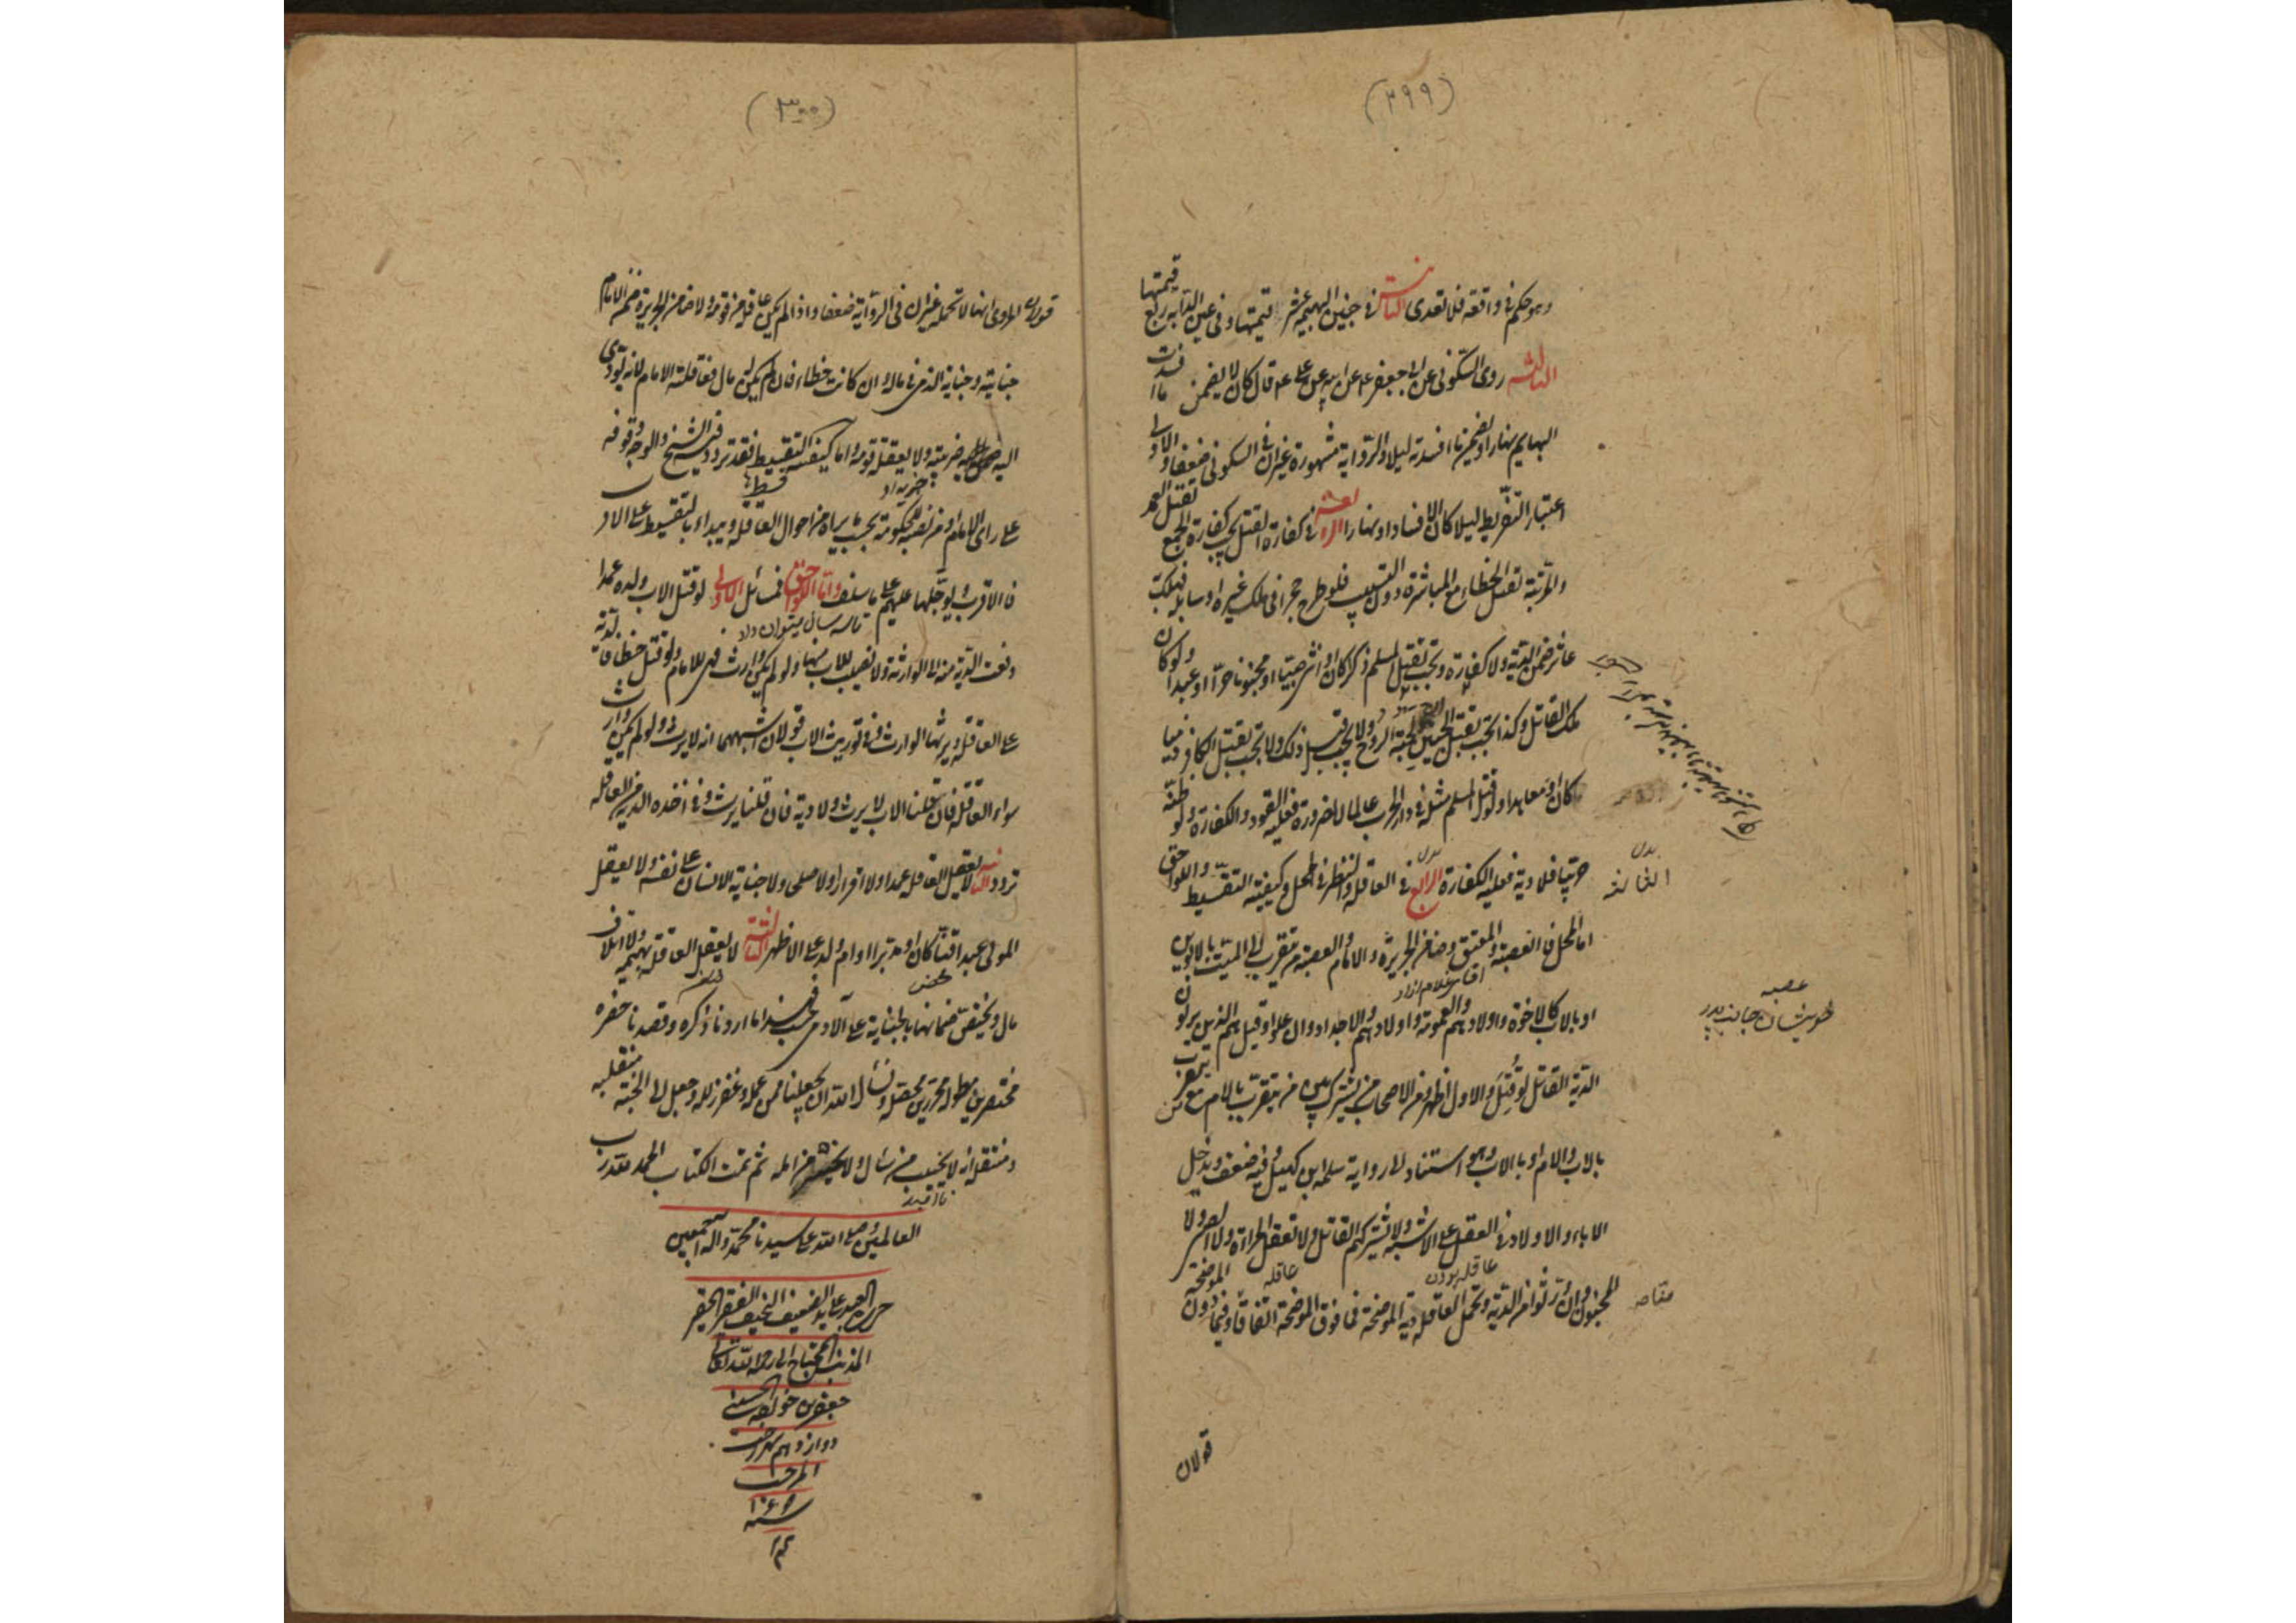 (۲۹۹)
وهو حكم فى واقعة فلا تعدى الثانية فى جنين البهيمة عشر قيمتها وفى عين الدابة ربع قيمتها
الثالثة روى السكونى عن ابى جعفر عن ابيه عن على ع م قال كان لا يضمن ما افسدت
البهايم نهارا ويضمن ما افسدته ليلا والرواية مشهورة غير ان فى السكونى ضعفا والاولى
اعتبار التفريط ليلا كان الافساد او نهارا الرابعة فى كفارة القتل تجب كفارة الجمع بقتل العمد
والمرتبة بقتل الخطاء مع المباشرة دون التسبيب فلو طرح حجرا فى ملك غيره او سابلة فهلك
عاثر ضمن الدية ولا كفارة وتجب بقتل المسلم ذكرا كان او انثى صبيا او مجنونا حرا او عبدا ولو كان
ملك القاتل وكذا تجب بقتل الجنين ان ولجته الروح ولا يجب قبل ذلك ولا تجب بقتل الكافر ذميا
كان او معاهدا ولو قتل المسلم مثله فى دار الحرب عالما لا لضرورة فعليه القود والكفارة ولو ظنه
حربيا فلا دية فعليه الكفارة الرابع فى العاقلة والنظر فى المحل وكيفية التقسيط واللواحق
اما المحل فالعصبة والمعتق وضامن الجريرة والامام والعصبة من تقرب الى الميت بالابوين
او بالاب كالاخوة واولادهم والعمومة واولادهم والاجداد وان علوا وقيل هم الذين يرثون
الدية القاتل لو قتل والاول اظهر ومن الاصحاب من يشترك بين من يتقرب بالام مع من يتقرب
بالاب والام او بالاب وهو استناد الى رواية سلمة ابن كهيل وفيه ضعف ويدخل
الاباء والاولاد فى العقل على الاشبه ولا يشتركهم القاتل ولا تعقل المراة ولا الصبى ولا
المجنون وان ورثوا من الدية وتحمل العاقلة دية الموضحة فما فوق الموضحة اتفاقا وفيما دون الموضحة
قولان
عصبه
خويشان جانب پدر
(۳۰۰)
قولان المروى انها لا تحمله غير ان فى الرواية ضعفا واذا لم يكن عاقلة من قومه ولا ضامن الجريرة ضمن الامام
جنايته وجناية الذمى فى ماله وان كانت خطاء فان لم يكن له مال فعاقلته الامام لانه يؤدى
اليه ضريبته ولا يعقله قومه واما كيفية التقسيط فقد تردد فيه الشيخ والوجه وقوفه
على راى الامام او من نصبه للحكومة بحسب ما يراه من احوال العاقلة ويبداء بالتقسيط على الاقرب
فالاقرب ويؤجلها عليهم على ما سلف واما اللواحق فمسائل الاولى لو قتل الاب ولده عمدا
دفعت الدية منه الى الوارث ولا نصيب للاب منها ولو لم يكن وارث فهى للامام ولو قتل خطا فالدية
على العاقلة ويرثها الوارث وفى توريث الاب قولان اشبههما انه لا يرث ولو لم يكن وارث
سواء العاقلة فان قلنا الاب لا يرث ولا دية فان قلنا يرث وفى اخذه الدية من العاقلة
تردد الثانية لا يعقل العاقلة عمدا ولا اقرارا ولا صلحى ولا جناية الانسان على نفسه ولا يعقل
المولى عبدا قنا كان او مدبرا او ام ولد على الاظهر الثالثة لا يعقل العاقلة بهيمة ولا اتلاف
مال ويختص ضمانها بالجناية على الآدمى فحسب فهذا ما اردنا ذكره وقصدنا حصره
مختصرين مطوله محررين محصله ونسأل الله ان يجعلنا ممن عمله وغفر زلله وجعل الى الجنة منقلبه
ومنتقله انه لا يخيب من سأله ولا يخسر من امله ثم تمت الكتاب الحمد لله رب
العالمين وصلى الله على سيدنا محمد وآله اجمعين
حرره العبد عابد الضعيف النحيف الفقير الحقير
المذنب المحتاج الى رحمة الله تعالى
جعفر بن خواجه الحسينى
دوازدهم شهر رجب
المرجب
سنه